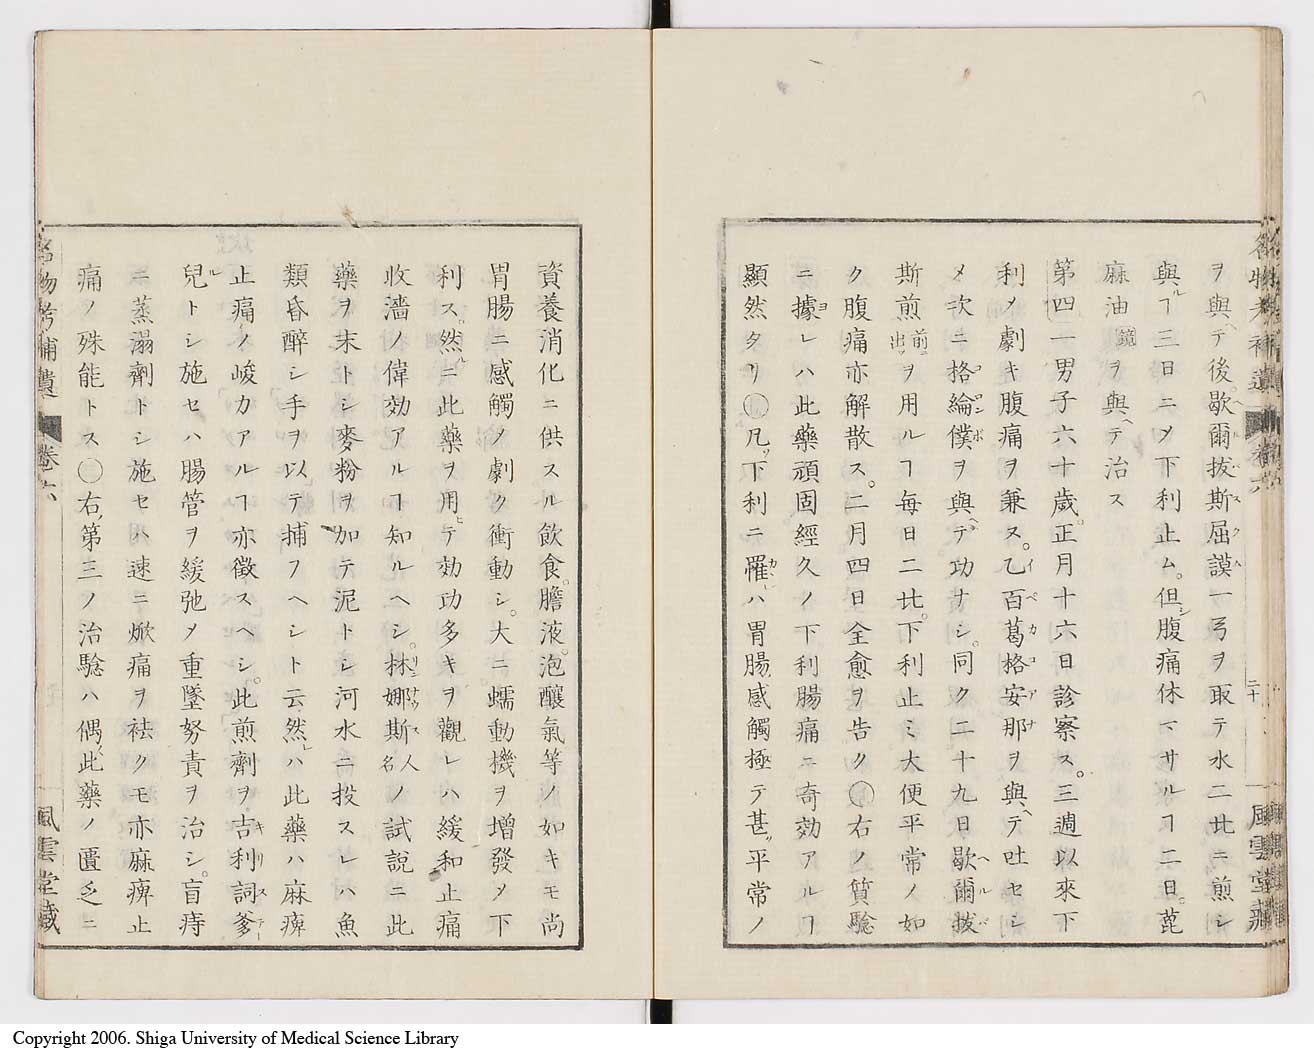 名物考補遺 卷六 二十 風雲堂藏
ヲ與ヘテ後歇爾拔斯屈謨一弓ヲ取テ水二㪷ニ煎シ
與ルヿ三日ニメ下利止ム。但シ腹痛休マサルヿ二日。蓖
麻油鏡ヲ與ヘテ治ス
第四一男子六十歳。正月十六日診察ス。三週以來下
利メ劇キ腹痛ヲ兼ス。乙百葛格安那ヲ與ヘテ吐セシ
メ次ニ格綸僕ヲ與ヘテ功ナシ。同ク二十九日歇爾拔
斯煎前ニ出ツヲ用ルヿ每日二㪷。下利止ミ大便平常ノ如
ク腹痛亦解散ス。二月四日全愈ヲ告ク○右ノ質驗
ニ據レハ此藥頑固經久ノ下利腸痛ニ奇効アルヿ
顯然タリ○凡ソ下利ニ罹レハ胃腸感觸極テ甚ク平常ノ
資養消化ニ供スル飮食。膽液。泡釀氣等ノ如キモ尚
胃腸ニ感觸メ劇ク衝動シ。大ニ蠕動機ヲ增發メ下
利ス。然ルニ此藥ヲ用ヒテ効功多キヲ觀レハ緩和止痛
收濇ノ偉効アルヿ知ルヘシ。林娜斯人名ノ試說ニ此
藥ヲ末トシ麥粉ヲ加テ泥トシ河水ニ投スレハ魚
類昏醉シ手ヲ以テ捕フヘシト云然レハ此藥ハ麻痺
止痛ノ峻力アルヿ亦徵スヘシ。此煎劑ヲ吉利詞爹
兒トシ施セハ腸管ヲ緩弛メ重墜努責ヲ治シ。盲痔
ニ蒸溻劑トシ施セハ速ニ焮痛ヲ袪クモ亦麻痺止
痛ノ殊能トス○右第三ノ治驗ハ偶〻此藥ノ匱乏ニ
名物考補遺 卷六 風雲堂藏
Copyright 2006. Shiga University of Medical Science Library